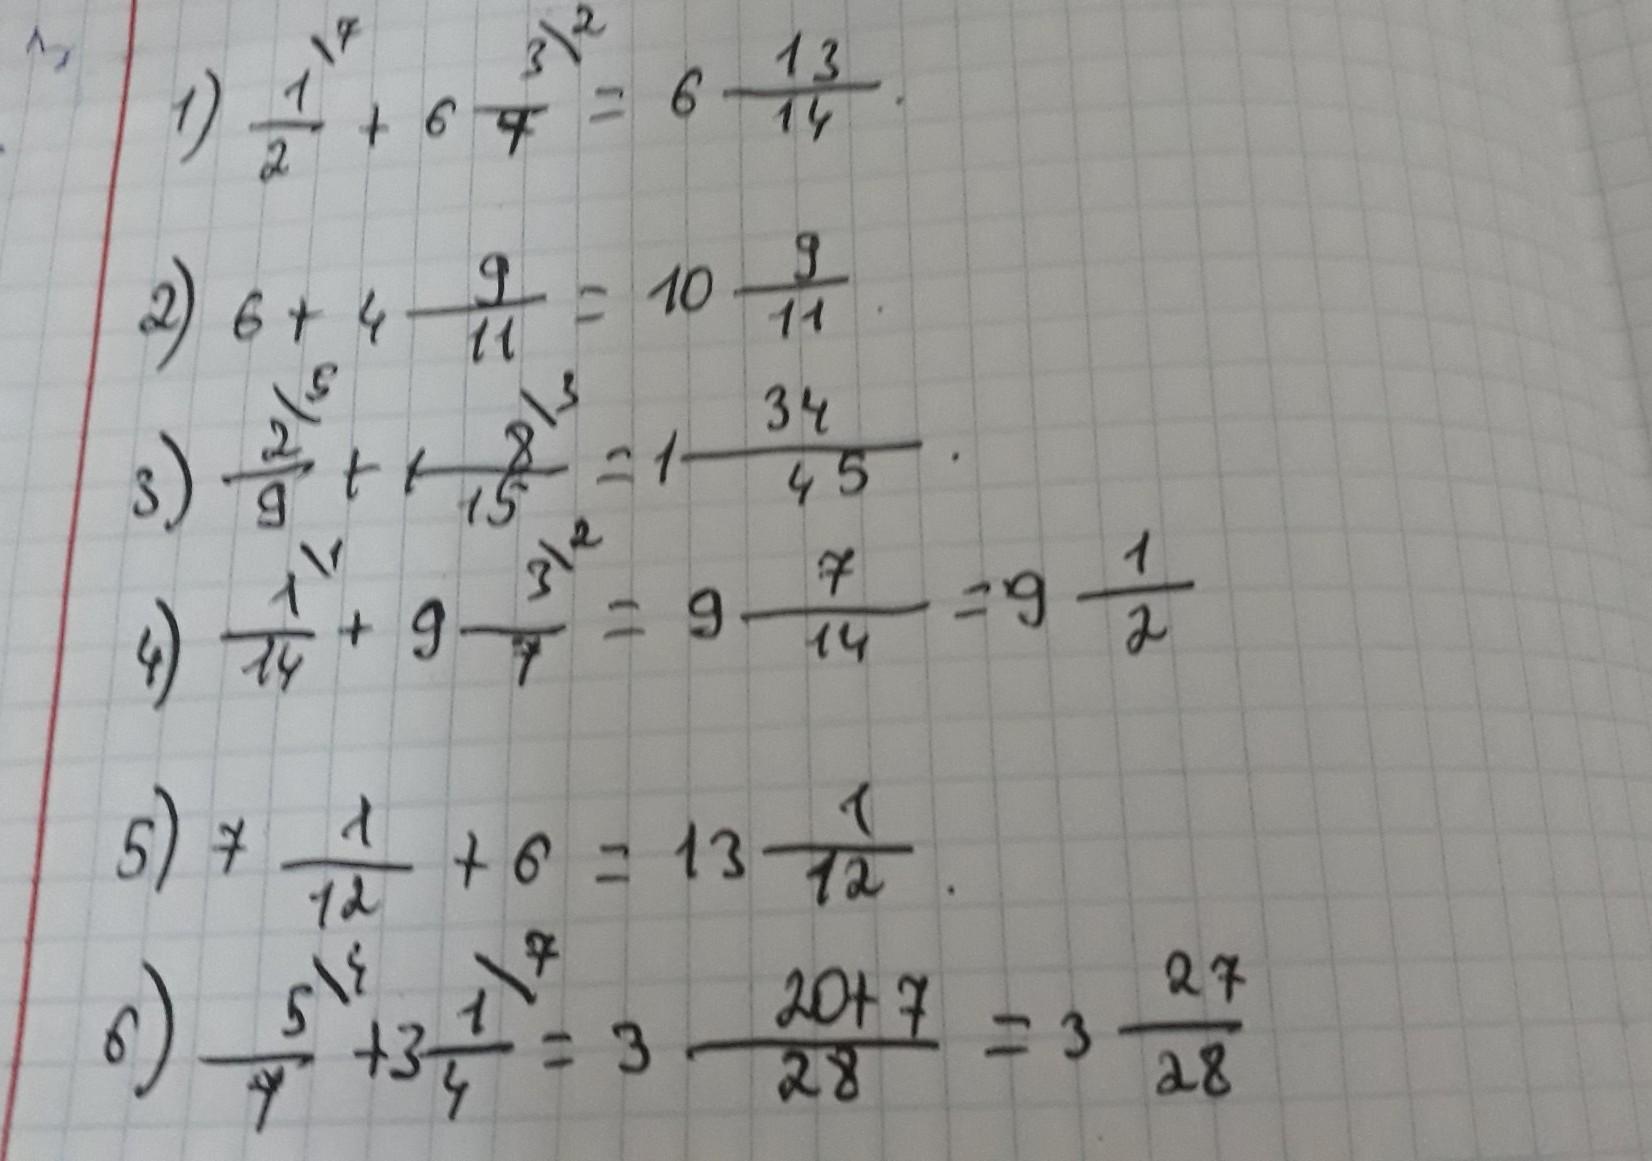 1) 1\7/2 + 6 3\2/7 = 6 13/14.
2) 6 + 4 9/11 = 10 9/11.
3) 2\5/9 + 1 8\3/15 = 1 34/45.
4) 1\1/14 + 9 3\2/7 = 9 7/14 = 9 1/2
5) 7 1/12 + 6 = 13 1/12.
6) 5\4/7 + 3 1\7/4 = 3 20+7/28 = 3 27/28